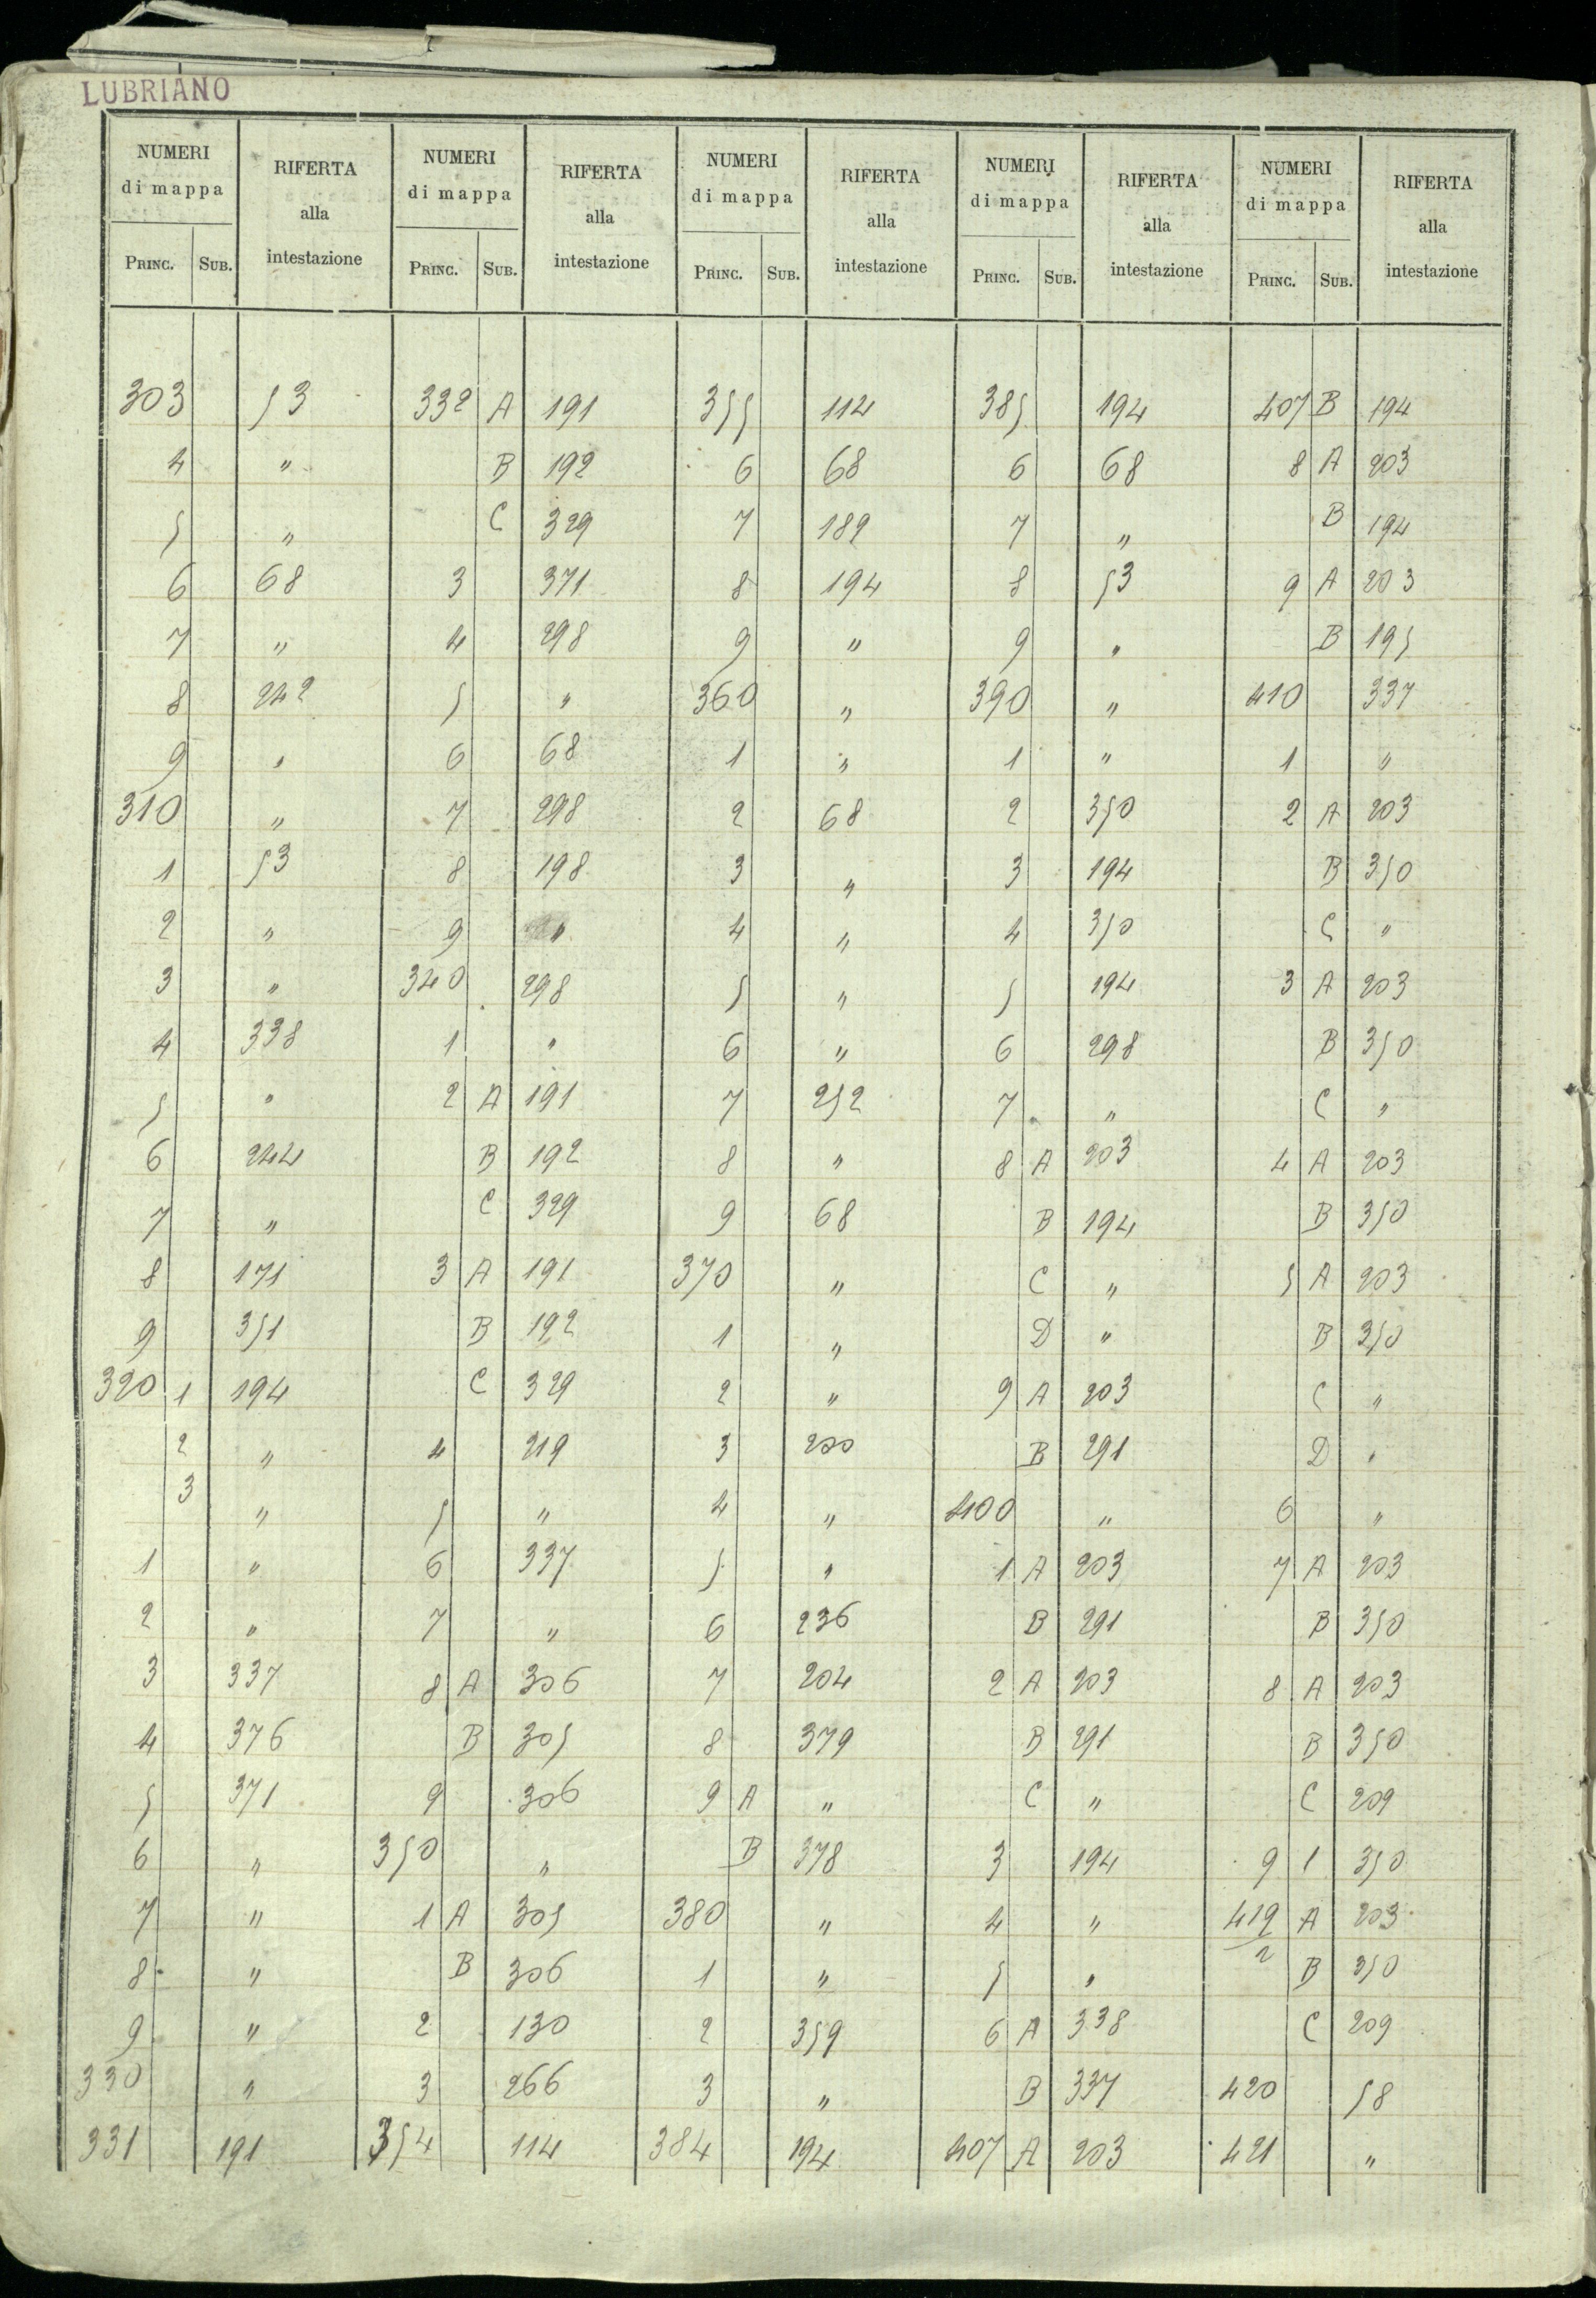 LUBRIANO
NUMERI di mappa RIFERTA alla intestazione NUMERI di mappa RIFERTA alla intestazione NUMERI di mappa RIFERTA alla intestazione NUMERI di mappa RIFERTA alla intestazione NUMERI di mappa RIFERTA alla intestazione
PRINC. SUB. PRINC. SUB. PRINC. SUB. PRINC. SUB. PRINC. SUB.
303 53 332 A 191 355 114 385 194 407 B 194
4 " B 192 6 68 6 68 8 A 203
5 " C 329 7 189 7 " B 194
6 68 3 371 8 194 8 53 9 A 203
7 " 4 298 9 " 9 " B 195
8 242 5 " 360 " 390 " 410 337
9 " 6 68 1 " 1 " 1 "
310 " 7 298 2 68 2 350 2 A 203
1 53 8 198 3 " 3 194 B 350
2 " 9 " 4 " 4 350 C "
3 " 340 298 5 " 5 194 3 A 203
4 338 1 " 6 " 6 298 B 350
5 " 2 A 191 7 252 7 " C "
6 244 B 192 8 " 8 A 203 4 A 203
7 " C 329 9 68 B 194 B 350
8 171 3 A 191 370 " C " 5 A 203
9 351 B 192 1 " D " B 350
320 1 194 C 329 2 " 9 A 203 C "
2 " 4 219 3 200 B 291 D "
3 " 5 " 4 " 400 " 6 "
1 " 6 337 5 " 1 A 203 7 A 203
2 " 7 " 6 236 B 291 B 350
3 337 8 A 306 7 204 2 A 203 8 A 203
4 376 B 305 8 379 B 291 B 350
5 371 9 306 9 A " C " C 209
6 " 350 " B 378 3 194 9 1 350
7 " 1 A 305 380 " 4 " 419/2 A 203
8 " B 306 1 " 5 " B 350
9 " 2 130 2 359 6 A 338 C 209
330 " 3 266 3 " B 337 420 58
331 191 354 114 384 194 407 A 203 421 "